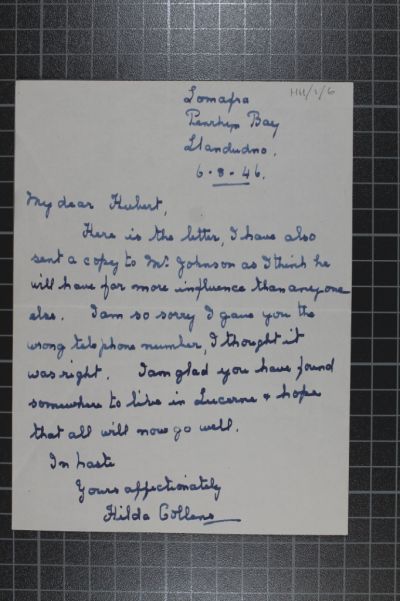 HH/1/6
Lomafra
Penrhyn Bay
Llandudno.
6-8-46.
My dear Hubert,
Here is the letter, I have also
sent a copy to Mr. Johnson as I think he
will have far more influence than anyone
else. I am so sorry I gave you the
wrong telephone number, I thought it
was right. I am glad you have found
somewhere to live in Lucerne & hope
that all will now go well.
In haste
Yours affectionately
Hilda Collens